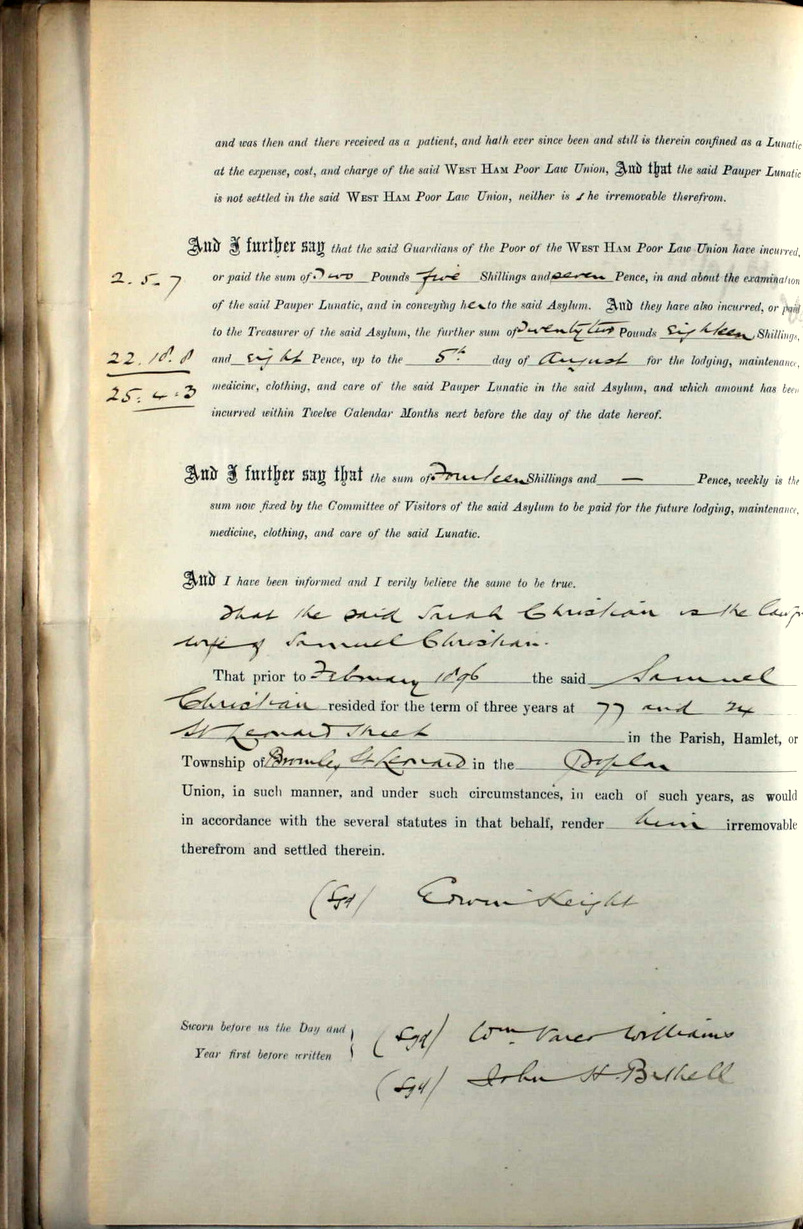 and was then and there received as a patient, and hath ever since been and still is therein confined as a Lunatic
at the expense, cost, and charge of the said WEST HAM Poor Law Union, And that the said Pauper Lunatic
is not settled in the said WEST HAM Poor Law Union, neither is she irremovable therefrom.
And I further say that the said Guardians of the Poor of the WEST HAM Poor Law Union have incurred,
2. 5. 7 or paid the sum of Two Pounds five Shillings and seven Pence, in and about the examination
of the said Pauper Lunatic, and in conveying her to the said Asylum. And they have also incurred, or paid
to the Treasurer of the said Asylum, the further sum of Twenty two Pounds Eighteen Shillings,
22. 18. 8 and eight Pence, up to the 5th day of August for the lodging, maintenance,
25. 4. 3 medicine, clothing, and care of the said Pauper Lunatic in the said Asylum, and which amount has been
incurred within Twelve Calendar Months next before the day of the date hereof.
And I further say that the sum of Fourteen Shillings and — Pence, weekly is the
sum now fixed by the Committee of Visitors of the said Asylum to be paid for the future lodging, maintenance,
medicine, clothing, and care of the said Lunatic.
And I have been informed and I verily believe the same to be true.
That the said Sarah Christian is the
wife of Samuel Christian.
That prior to February 1896 the said Samuel
Christian resided for the term of three years at 77 and 24
St Leonard Street in the Parish, Hamlet, or
Township of Bromley St Leonard in the Poplar
Union, in such manner, and under such circumstances, in each of such years, as would
in accordance with the several statutes in that behalf, render him irremovable
therefrom and settled therein.
(Sgd) Edwin Keight
Sworn before us the Day and
Year first before written
(Sgd) Wm Williams
(Sgd) John H. Bethell